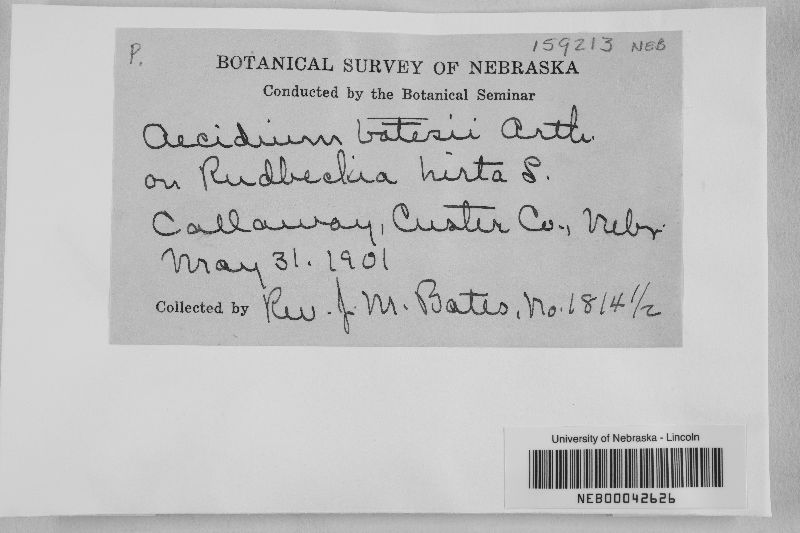 P.
159213 NEB
BOTANICAL SURVEY OF NEBRASKA
Conducted by the Botanical Seminar
Aecidium batesii Arth.
on Rudbeckia hirta L.
Callaway, Custer Co., Nebr.
May 31. 1901
Collected by Rev. J. M. Bates, No. 1814 1/2
University of Nebraska - Lincoln
NEB00042626